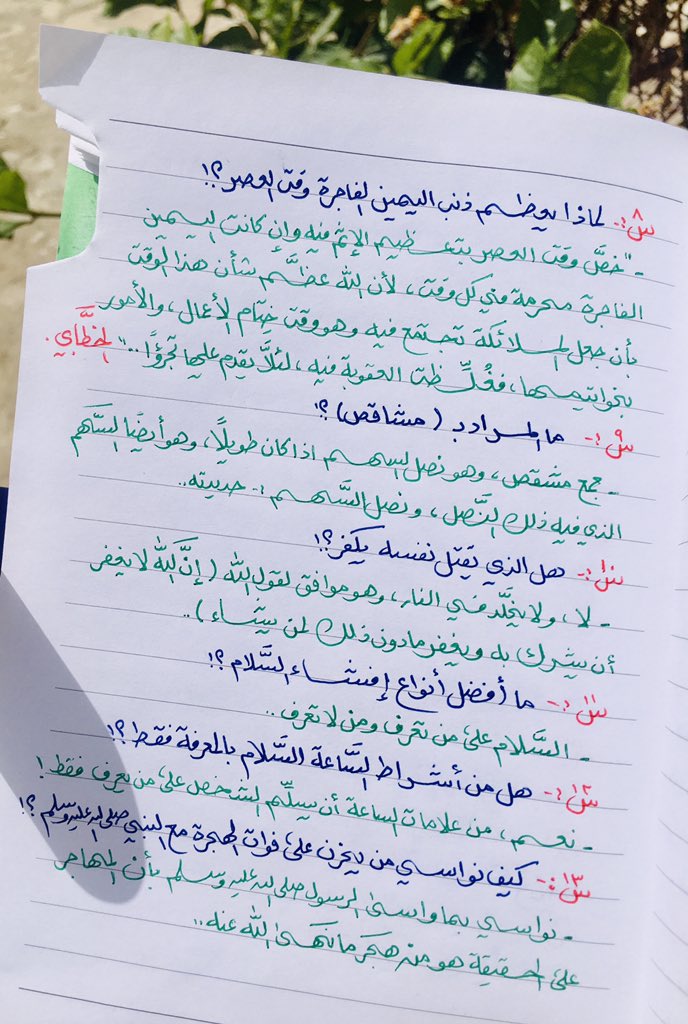 س٨:- لماذا يعظم ذنب اليمين الفاجرة وقت العصر؟!
- "خصَّ وقت العصر بتعظيم الإثم فيه وإن كانت اليمين
الفاجرة محرمة في كل وقت، لأن الله عظَّم شأن هذا الوقت
بأن جعل الملائكة تجتمع فيه وهو وقت ختام الأعمال، والأمور
بخواتيمها، فغُلِّظت العقوبة فيه، لئلَّا يقدم عليها تجرؤًا.." الخطَّابي.
س٩:- ما المراد بـ (مشاقص)؟!
- جمع مشقص، وهو نصل السهم اذا كان طويلًا، وهو أيضًا السَّهم
الذي فيه ذلك النَّصل، ونصل السَّهم :- حديدته..
س١٠:- هل الذي يقتل نفسه يكفر؟!
- لا، ولا يخلَّد في النار، وهو موافق لقول الله (إنَّ الله لا يغفر
أن يشرك به ويغفر مادون ذلك لمن يشاء)..
س١١:- ما أفضل أنواع إفشاء السَّلام؟!
- السَّلام على من تعرف ومن لا تعرف..
س١٢:- هل من أشراط السَّاعة السَّلام بالمعرفة فقط؟!
- نعم، من علامات الساعة أن يسلِّم الشخص على من يعرف فقط!
س١٣:- كيف نواسي من يحزن على فوات الهجرة مع النبي صلى الله عليه وسلم؟!
- نواسي بما واسى الرسول صلى الله عليه وسلم بأن المهاجر
على الحقيقة هو من هجر ما نهى الله عنه..